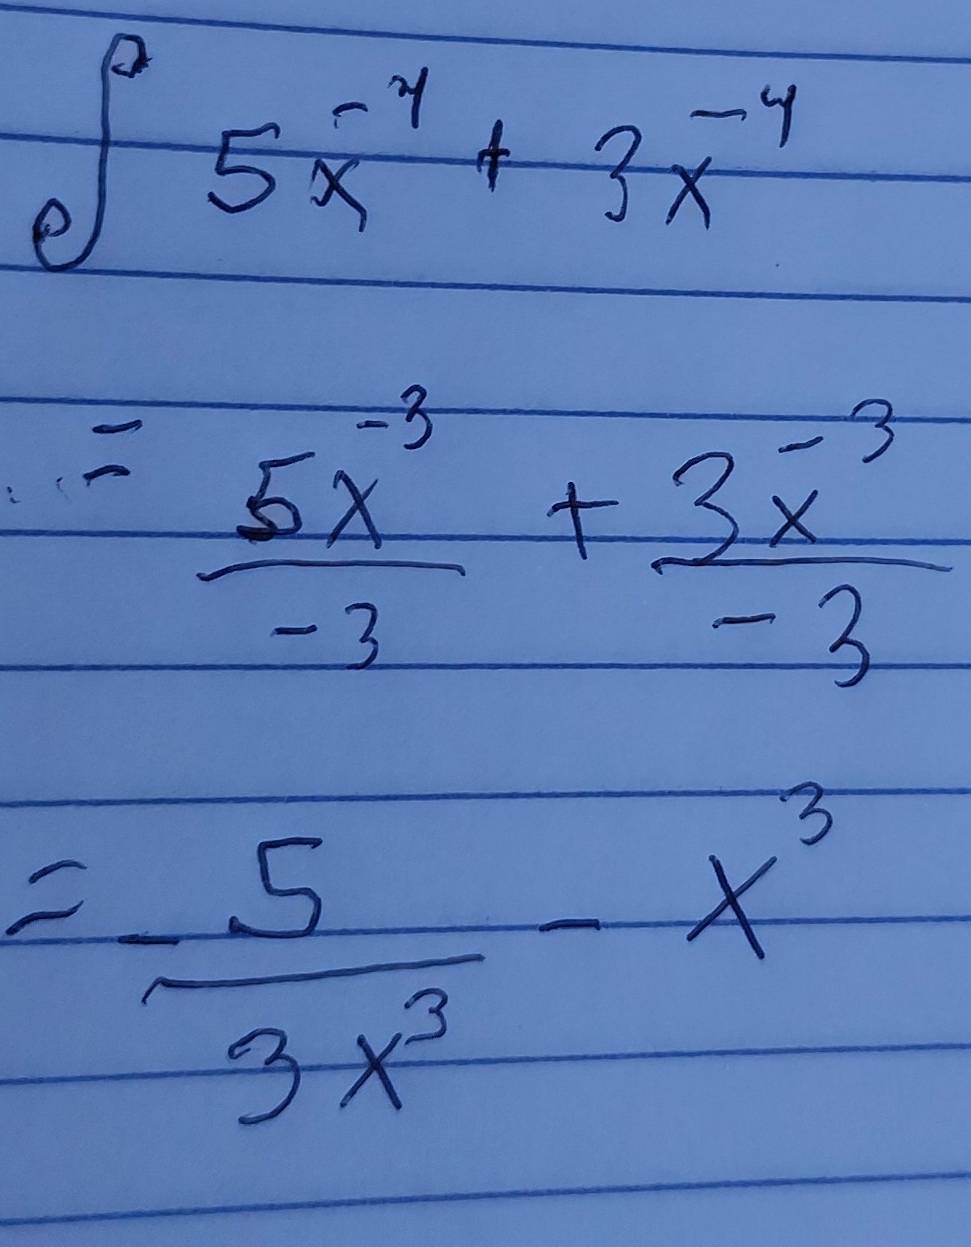 ∫ 5x⁻⁴ + 3x⁻⁴
= 5x⁻³/-3 + 3x⁻³/-3
= -5/3x³ - x³